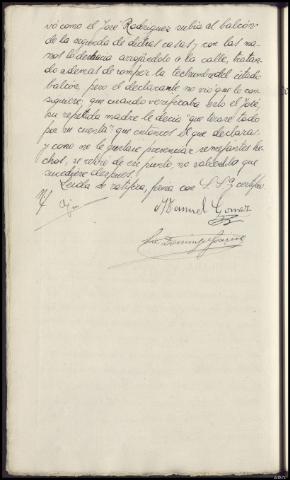 vó como el José Rodríguez subía al balcón
de la morada de dichos casas, y con las ma-
nos le arrojándolo a la calle, tratan-
do además de romper la techumbre del citado
balcón, pero el declarante no vio que lo con-
siguiese, que cuando verificaba esto el José,
su repetida madre le decía "que tirase todo
por su cuenta" que entonces el que declara
y como no le gustase presenciar semejantes he-
chos, se retiró de ese punto, no sabiendo lo que
sucediese después.
Leída se ratifica, firma con S.S. y certifico
Manuel Gomez
Domingo